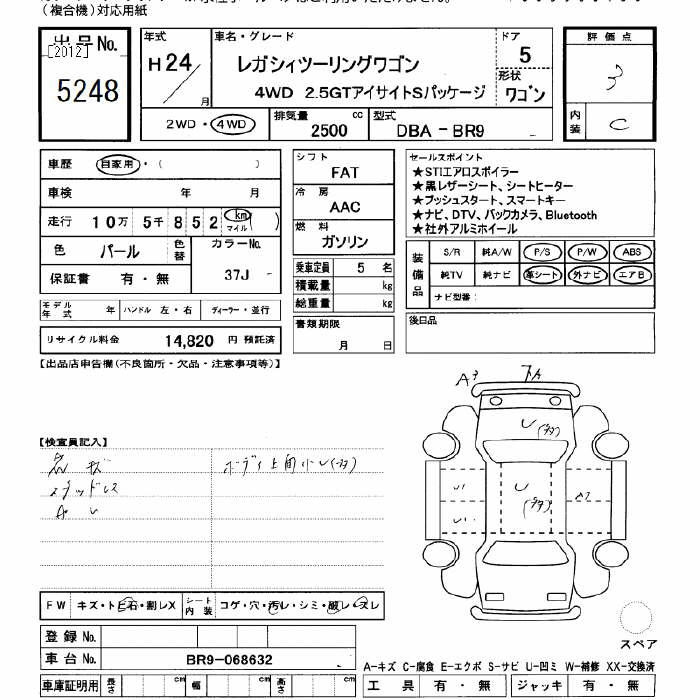 (複合機)対応用紙
出品No.
[2012]
5248
年式
H24/
月
車名・グレード
レガシィツーリングワゴン
4WD 2.5GTアイサイトSパッケージ
ドア
5
形状
ワゴン
2WD・4WD
排気量
2500 cc
型式
DBA-BR9
評価点
3
内装
C
車歴 自家用・( )
車検 年 月
走行 10万 5千 852 km マイル( )
色 パール 色替
カラーNo.
37J
保証書 有・無
モデル年式 年 ハンドル 左・右 ディーラー・並行
リサイクル料金 14,820 円 預託済
シフト
FAT
冷房
AAC
燃料
ガソリン
乗車定員 5 名
積載量 kg
総重量 kg
書類期限
月 日
セールスポイント
★STIエアロスポイラー
★黒レザーシート、シートヒーター
★プッシュスタート、スマートキー
★ナビ、DTV、バックカメラ、Bluetooth
★社外アルミホイール
装備品
S/R 純A/W P/S P/W ABS
純TV 純ナビ 革シート 外ナビ エアB
ナビ型番:
後日品
【出品店申告欄(不良箇所・欠品・注意事項等)】
【検査員記入】
A U
F W キズ・トビ石・割レX
シート内装 コゲ・穴・汚レ・シミ・破レ・スレ
登録No.
車台No. BR9-068632
車庫証明用 長さ cm 幅 cm 高さ cm
スペア
A-キズ C-腐食 E-エクボ S-サビ U-凹ミ W-補修 XX-交換済
工具 有・無 ジャッキ 有・無